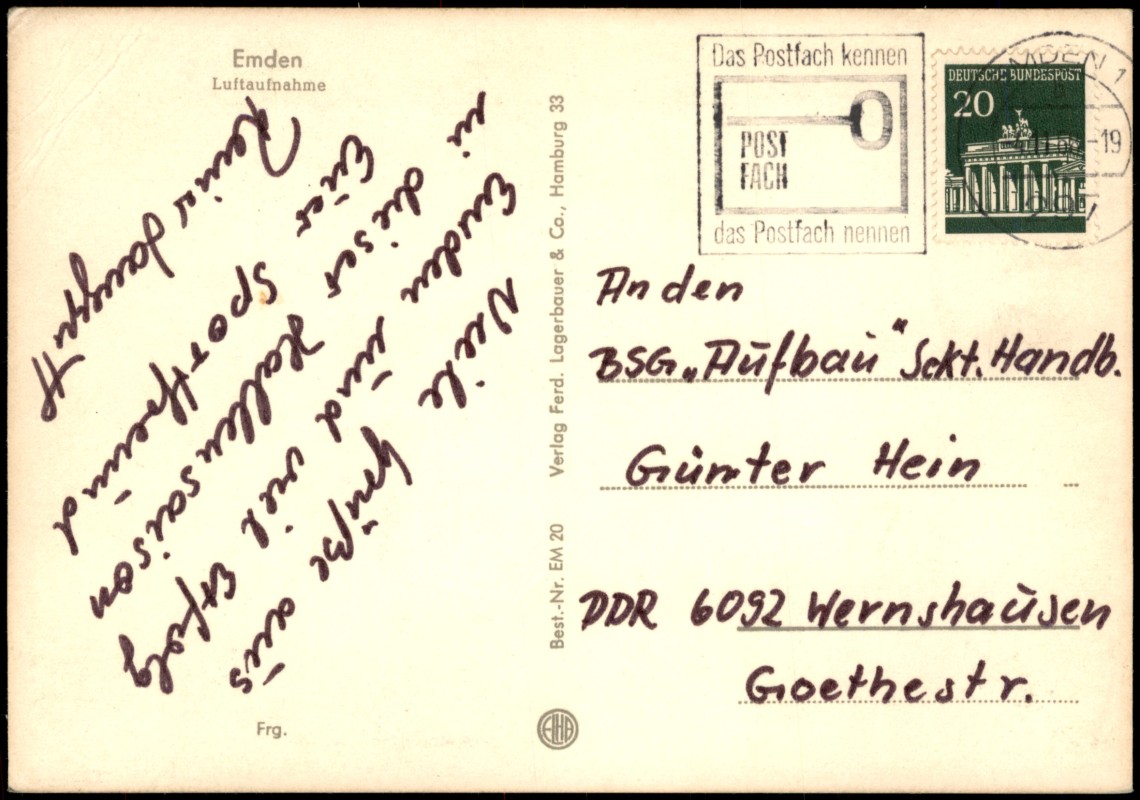 Emden
Luftaufnahme
Viele Grüße aus
Emden und viel Erfolg
in dieser Hallensaison
Euer Sportfreund
Frg.
Verlag Ferd. Lagerbauer & Co., Hamburg 33
Best.-Nr. EM 20
ELHA
Das Postfach kennen
POST
FACH
das Postfach nennen
DEUTSCHE BUNDESPOST
20
EMDEN 1
-19
An den
BSG „Aufbau" Sekt. Handb.
Günter Hein
DDR 6092 Wernshausen
Goethestr.